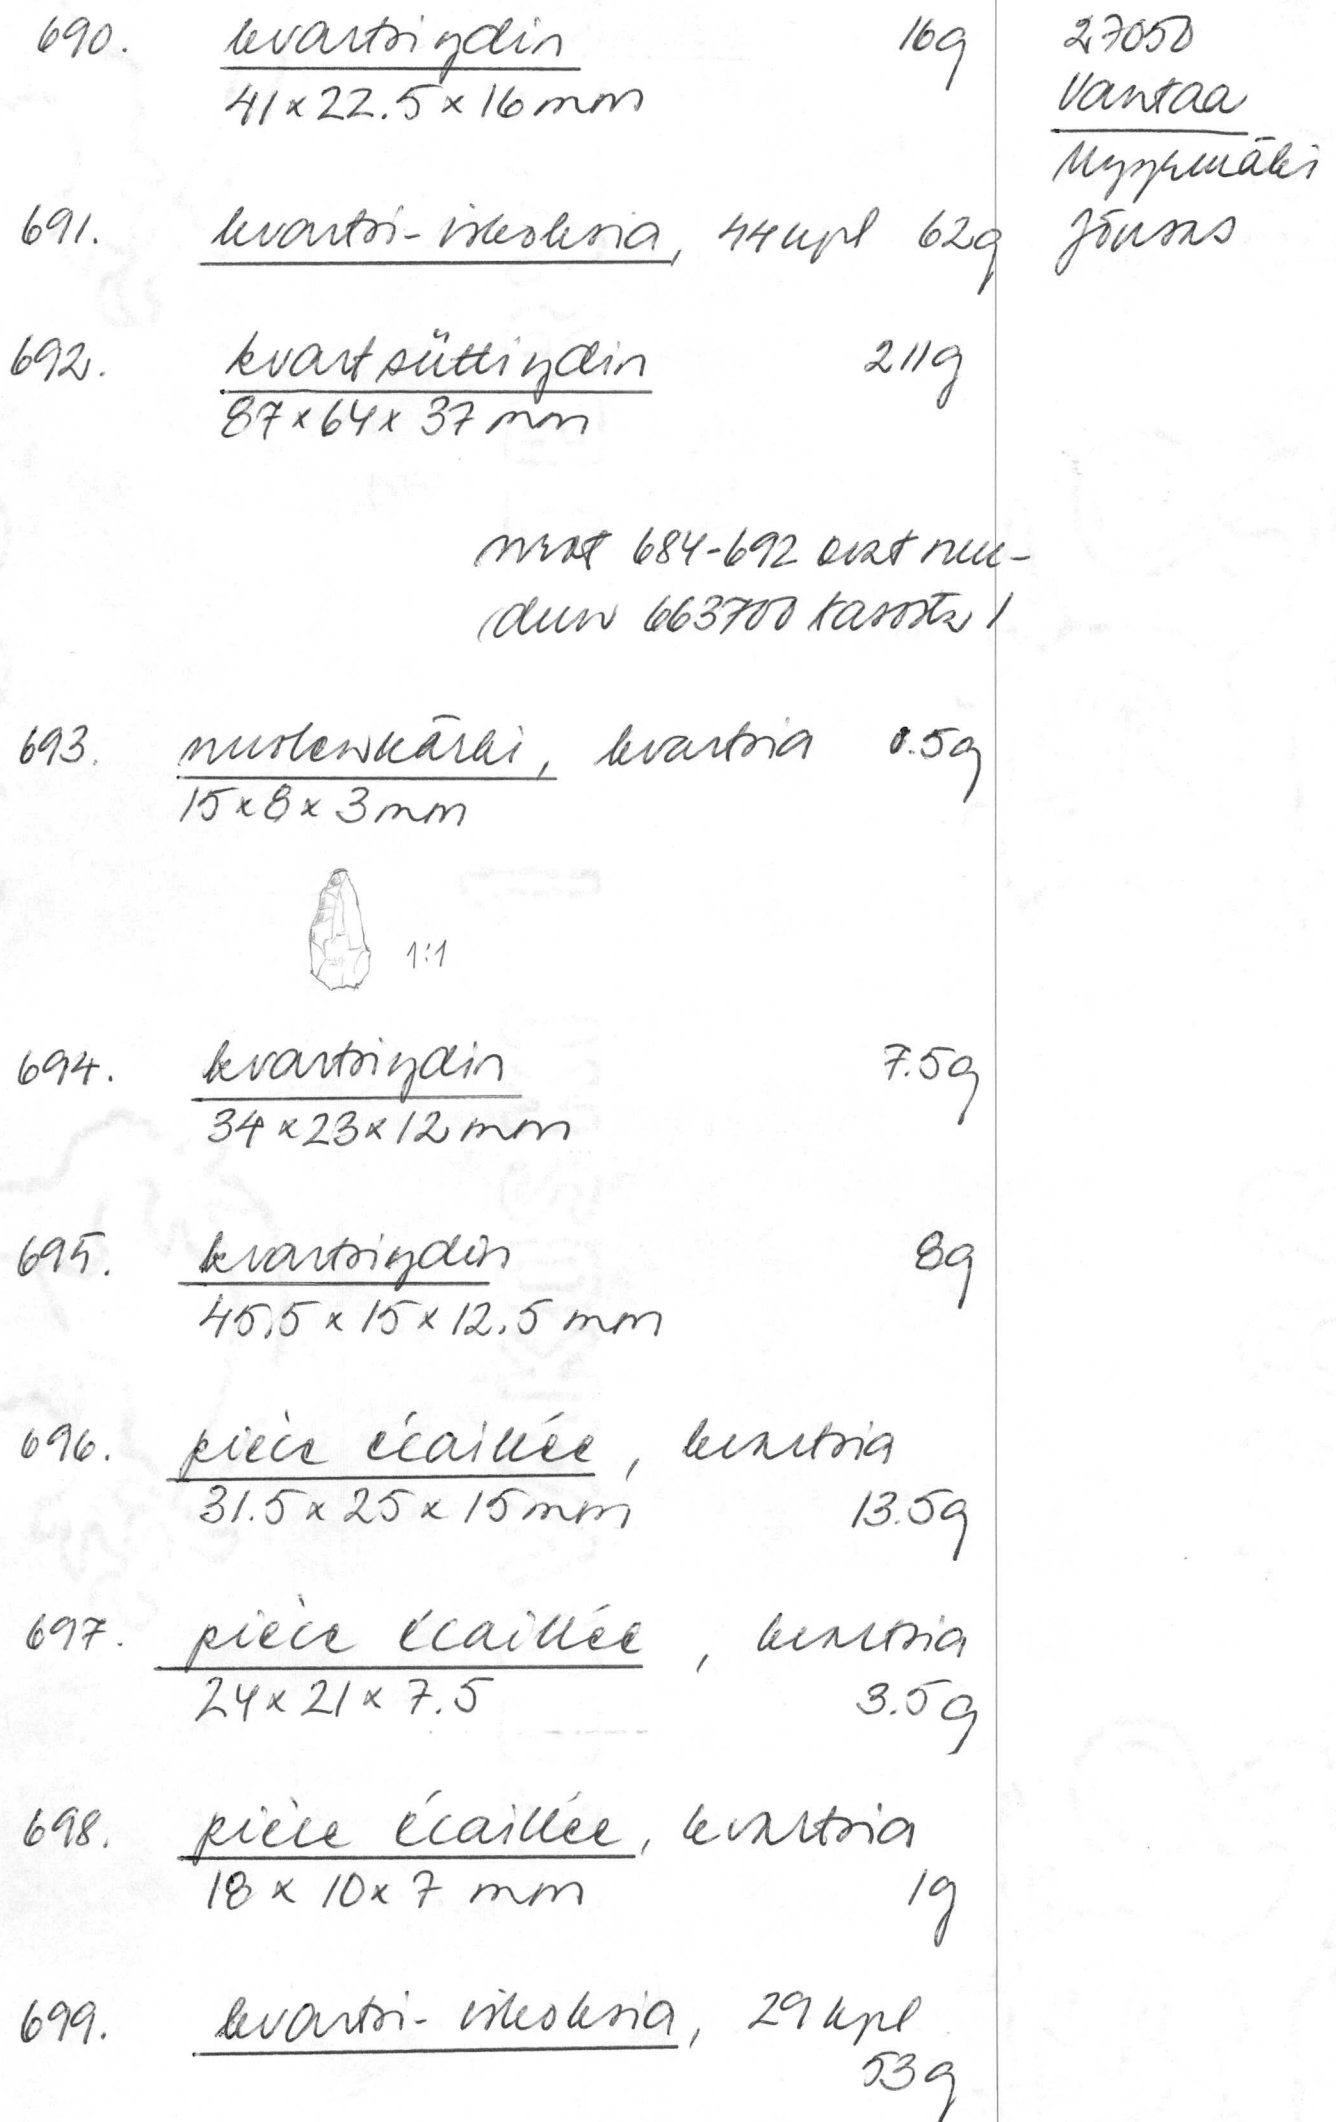 690. kvartsiydin 16g
41 x 22.5 x 16 mm
27050
Vantaa
Myyrmäki
Jönsas
691. kvartsi-iskoksia, 44 kpl 62g
692. kvartsiittiydin 211g
87 x 64 x 37 mm
nrot 684-692 ovat ruu-
dun 663700 tasosta 1
693. nuolenkärki, kvartsia 0.5g
15 x 8 x 3 mm
1:1
694. kvartsiydin 7.5g
34 x 23 x 12 mm
695. kvartsiydin 8g
45.5 x 15 x 12.5 mm
696. pièce écaillée, kvartsia
31.5 x 25 x 15 mm 13.5g
697. pièce écaillée, kvartsia
24 x 21 x 7.5 3.5g
698. pièce écaillée, kvartsia
18 x 10 x 7 mm 1g
699. kvartsi-iskoksia, 29 kpl
53g